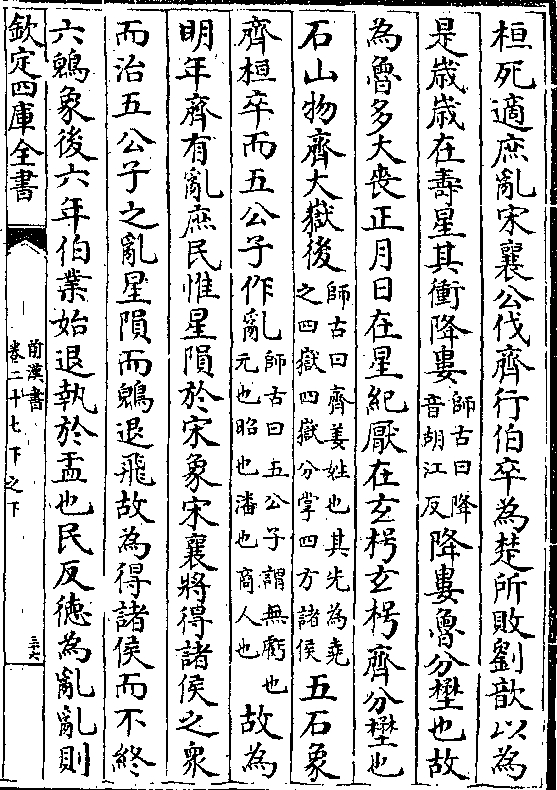 桓死適庶亂宋襄公伐齊行伯卒為楚所敗劉歆以為
是歲歲在壽星其衝降婁師古曰降音胡江反降婁魯分壄也故
為魯多大喪正月日在星紀厭在玄枵玄枵齊分壄也
石山物齊大嶽後師古曰齊姜姓也其先為堯之四嶽四嶽分掌四方諸侯五石象
齊桓卒而五公子作亂師古曰五公子謂無虧也元也昭也潘也商人也故為
明年齊有亂庶民惟星隕於宋象宋襄將得諸侯之衆
而治五公子之亂星隕而鶂退飛故為得諸侯而不終
六鶂象後六年伯業始退執於盂也民反德為亂亂則
欽定四庫全書
前漢書
卷二十七下之下
三十六